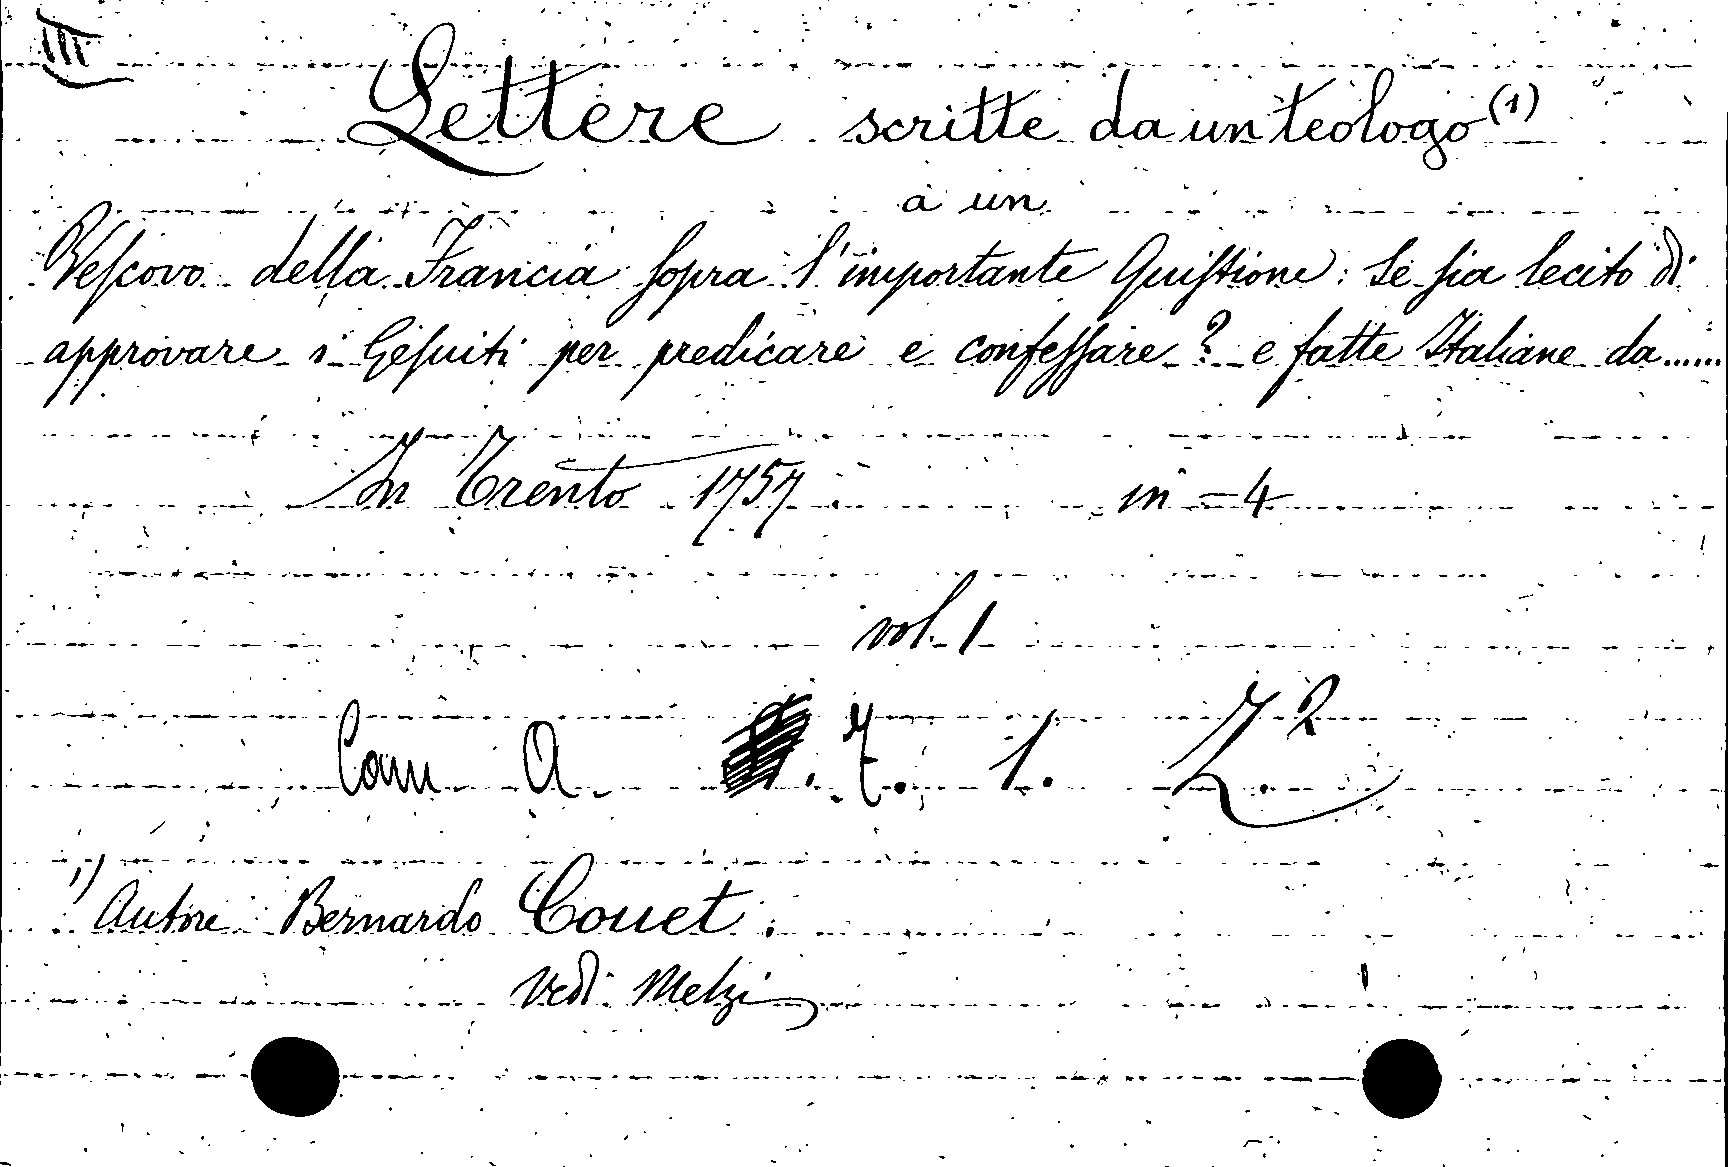 III
Lettere scritte da un teologo (1)
a un
Vescovo della Francia sopra l'importante Quistione: Se sia lecito di
approvare i Gesuiti per predicare e confessare? e fatte Italiane da......
In Trento 1757. in-4
vol. 1
Cam A. 7. 1. Z.2
1) Autore Bernardo Couet.
Vedi Melzi